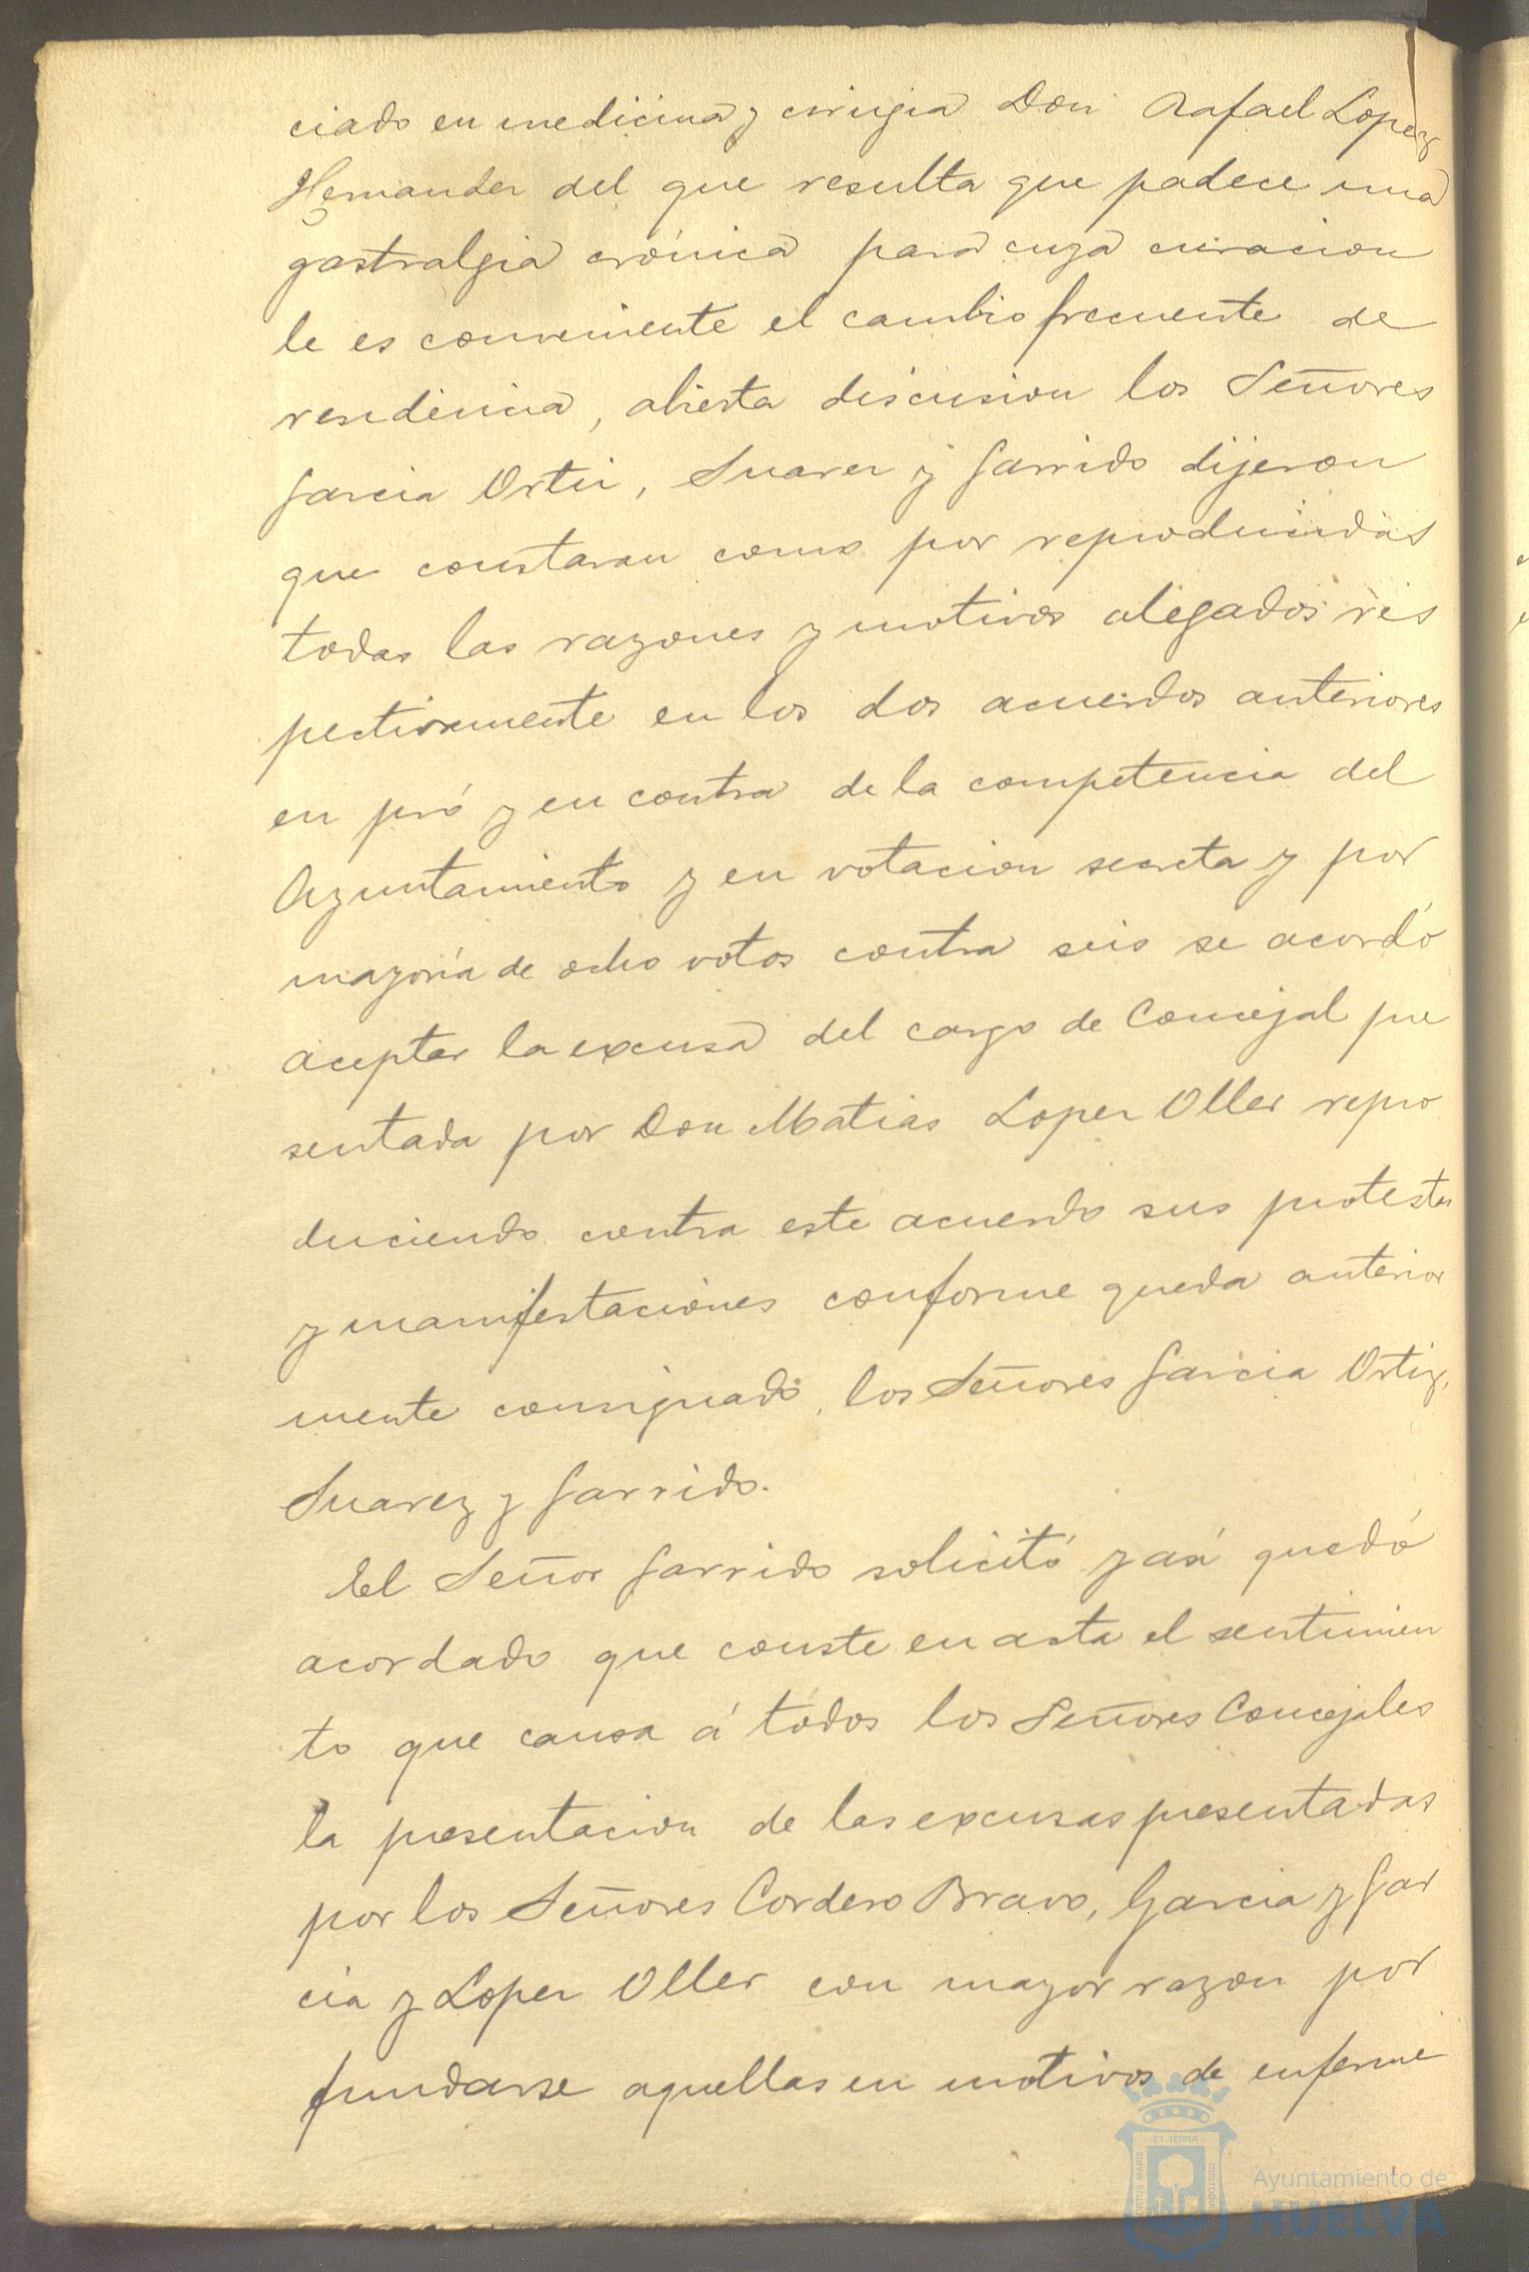 ciado en medicina y cirugia Don Rafael Lopez
Hernandez del que resulta que padece una
gastralgia crónica para cuya curacion
le es conveniente el cambio frecuente de
residencia, abierta discusion los Señores
Garcia Ortiz, Suarez y Garrido dijeron
que constaran como por reproducidas
todas las razones y motivos alegados res
pectivamente en los dos acuerdos anteriores
en pró y en contra de la competencia del
Ayuntamiento y en votacion secreta y por
mayoría de ocho votos contra seis se acordó
aceptar la excusa del cargo de Concejal pre
sentada por Don Matias Lopez Oller repro
duciendo contra este acuerdo sus protestas
y manifestaciones conforme queda anterior
mente consignado, los Señores Garcia Ortiz,
Suarez y Garrido.
El Señor Garrido solicitó y así quedó
acordado que conste en acta el sentimien
to que causa á todos los Señores Concejales
la presentacion de las excusas presentadas
por los Señores Cordero Bravo, Garcia y Gar
cia y Lopez Oller con mayor razon por
fundarse aquellas en motivos de enferme
Ayuntamiento de
HUELVA